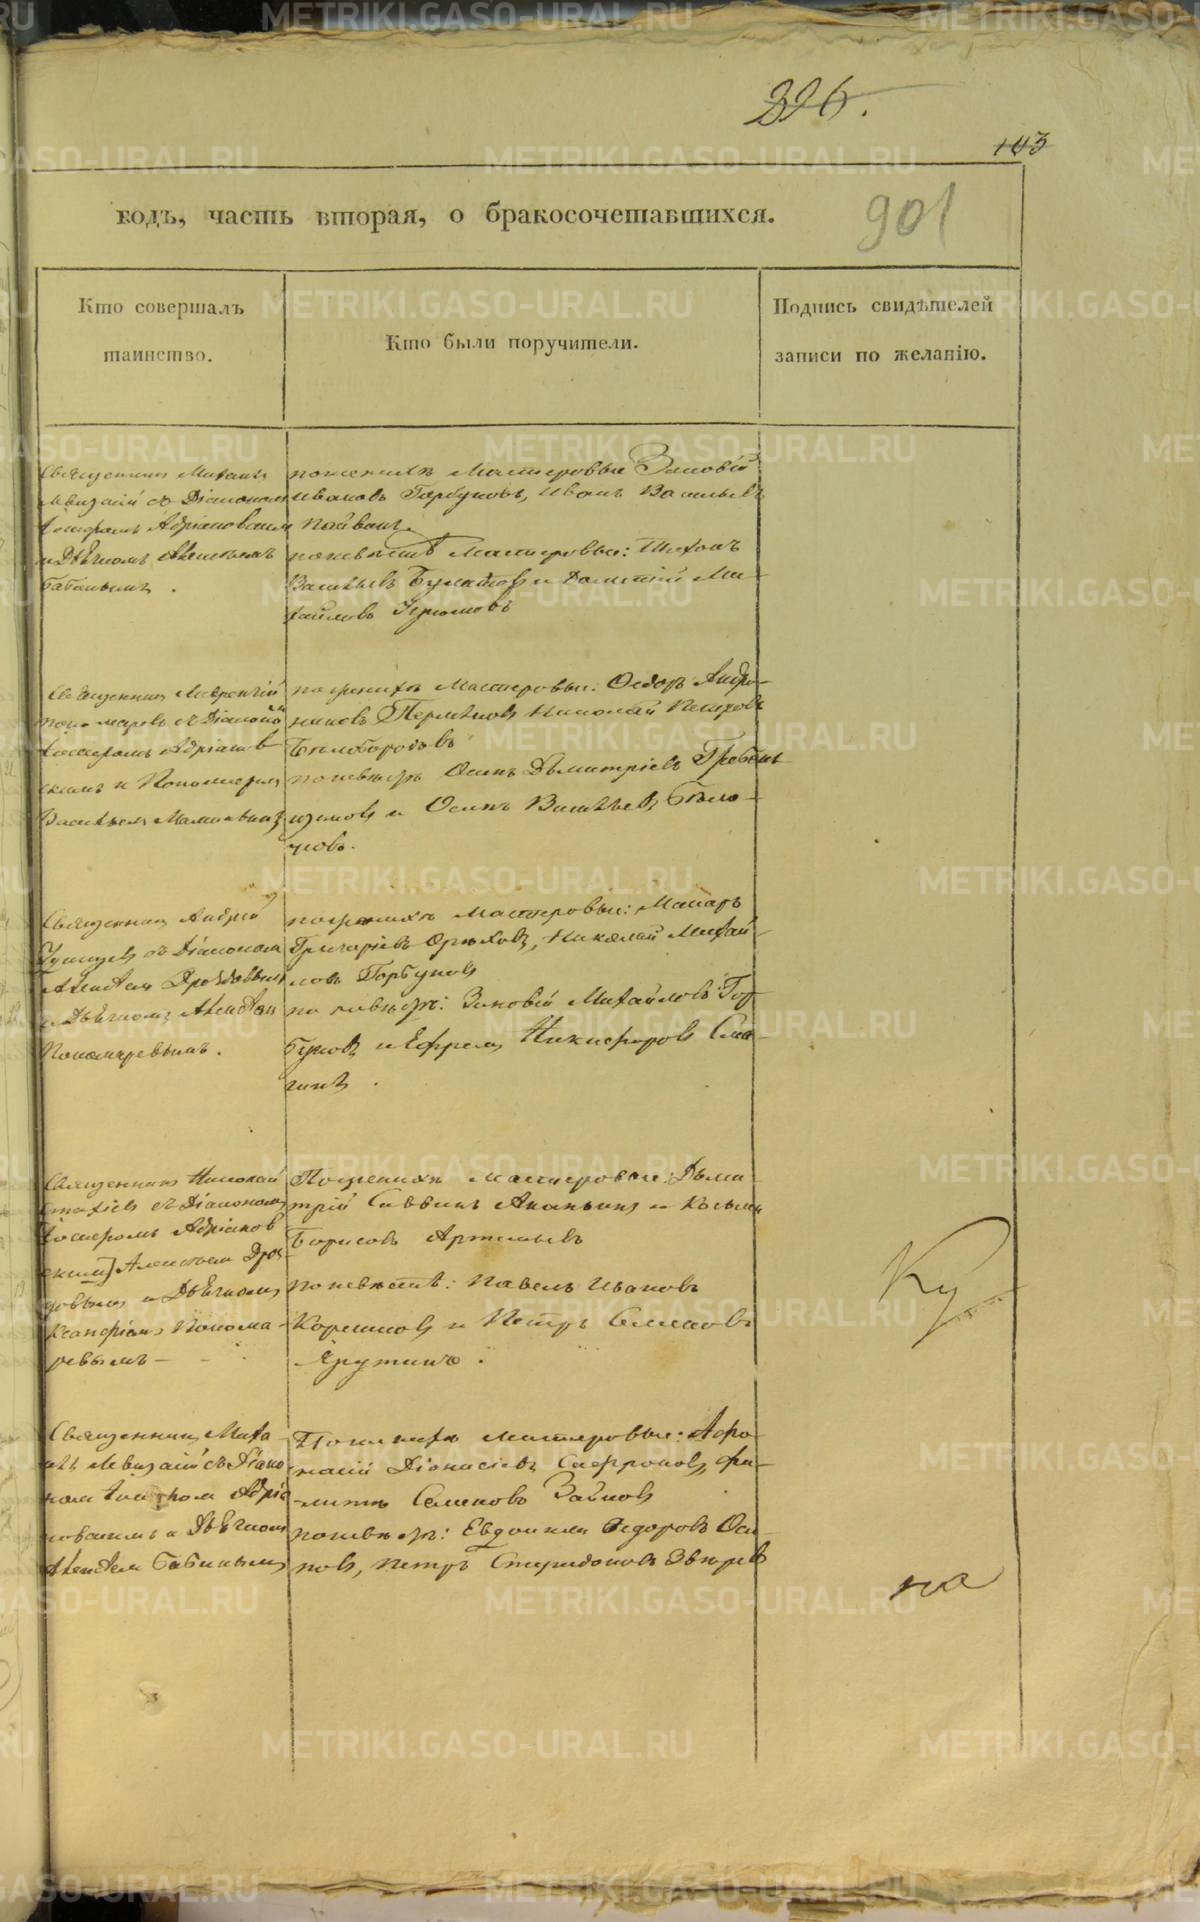 326.
143
901
годъ, часть вторая, о бракосочетавшихся.
Кто совершалъ
таинство.
Кто были поручители.
Подпись свидѣтелей
записи по желанію.
Священникъ Михаилъ
Левицкій съ Діакономъ
и Дьячкомъ Алексѣемъ
Бабинымъ.
по женихѣ Мастеровые Зиновій
Ивановъ Горбуновъ, Иванъ Васильевъ
по невѣстѣ Мастеровые: Тихонъ
Васильевъ и Дометій Ми-
хайловъ Угрюмовъ
Священникъ Лаврентій
Пономаревъ съ Діакономъ
и Пономаремъ
Васильемъ
по женихѣ Мастеровые: Ѳедоръ Андро-
никовъ Пермяковъ Николай Петровъ
Бѣлобородовъ
по невѣстѣ Осипъ Дьмитріевъ Гребень-
щиковъ и Осипъ Васильевъ Бѣло-
усовъ.
Священникъ Андрей
съ Діакономъ
Алексѣемъ Дроздовымъ
и Дьячкомъ Алексѣем
Пономаревымъ.
по женихѣ Мастеровые: Макаръ
Григорьевъ Орѣховъ, Николай Михай-
ловъ Горбуновъ
по невѣстѣ: Зиновій Михайловъ Гор-
буновъ и Ефремъ Никифоровъ Сма-
гинъ.
Священникъ Николай
съ Діакономъ
Адріанов
скимъ] Алексѣемъ Дроз-
довымъ и Дьячкомъ
Понома-
ревымъ
По женихѣ мастеровые: Дьми-
трій Саввинъ Ананьинъ и Козьма
Борисовъ Артемьевъ
по невѣстѣ: Павелъ Ивановъ
Коршуновъ и Петръ Семеновъ
Ярутинъ.
Священникъ Миха-
илъ Левицкій съ Діако-
номъ Адріа-
новскимъ и Дьячкомъ
Алексѣемъ Бабинымъ
По женихѣ мастеровые: Афо-
насій Діонисіевъ Сафроновъ, Фи-
липъ Семеновъ Зайковъ
по невѣстѣ: Евдокимъ Ѳедоровъ Оси-
повъ, Петръ Спиридоновъ Звѣревъ
METRIKI.GASO-URAL.RU